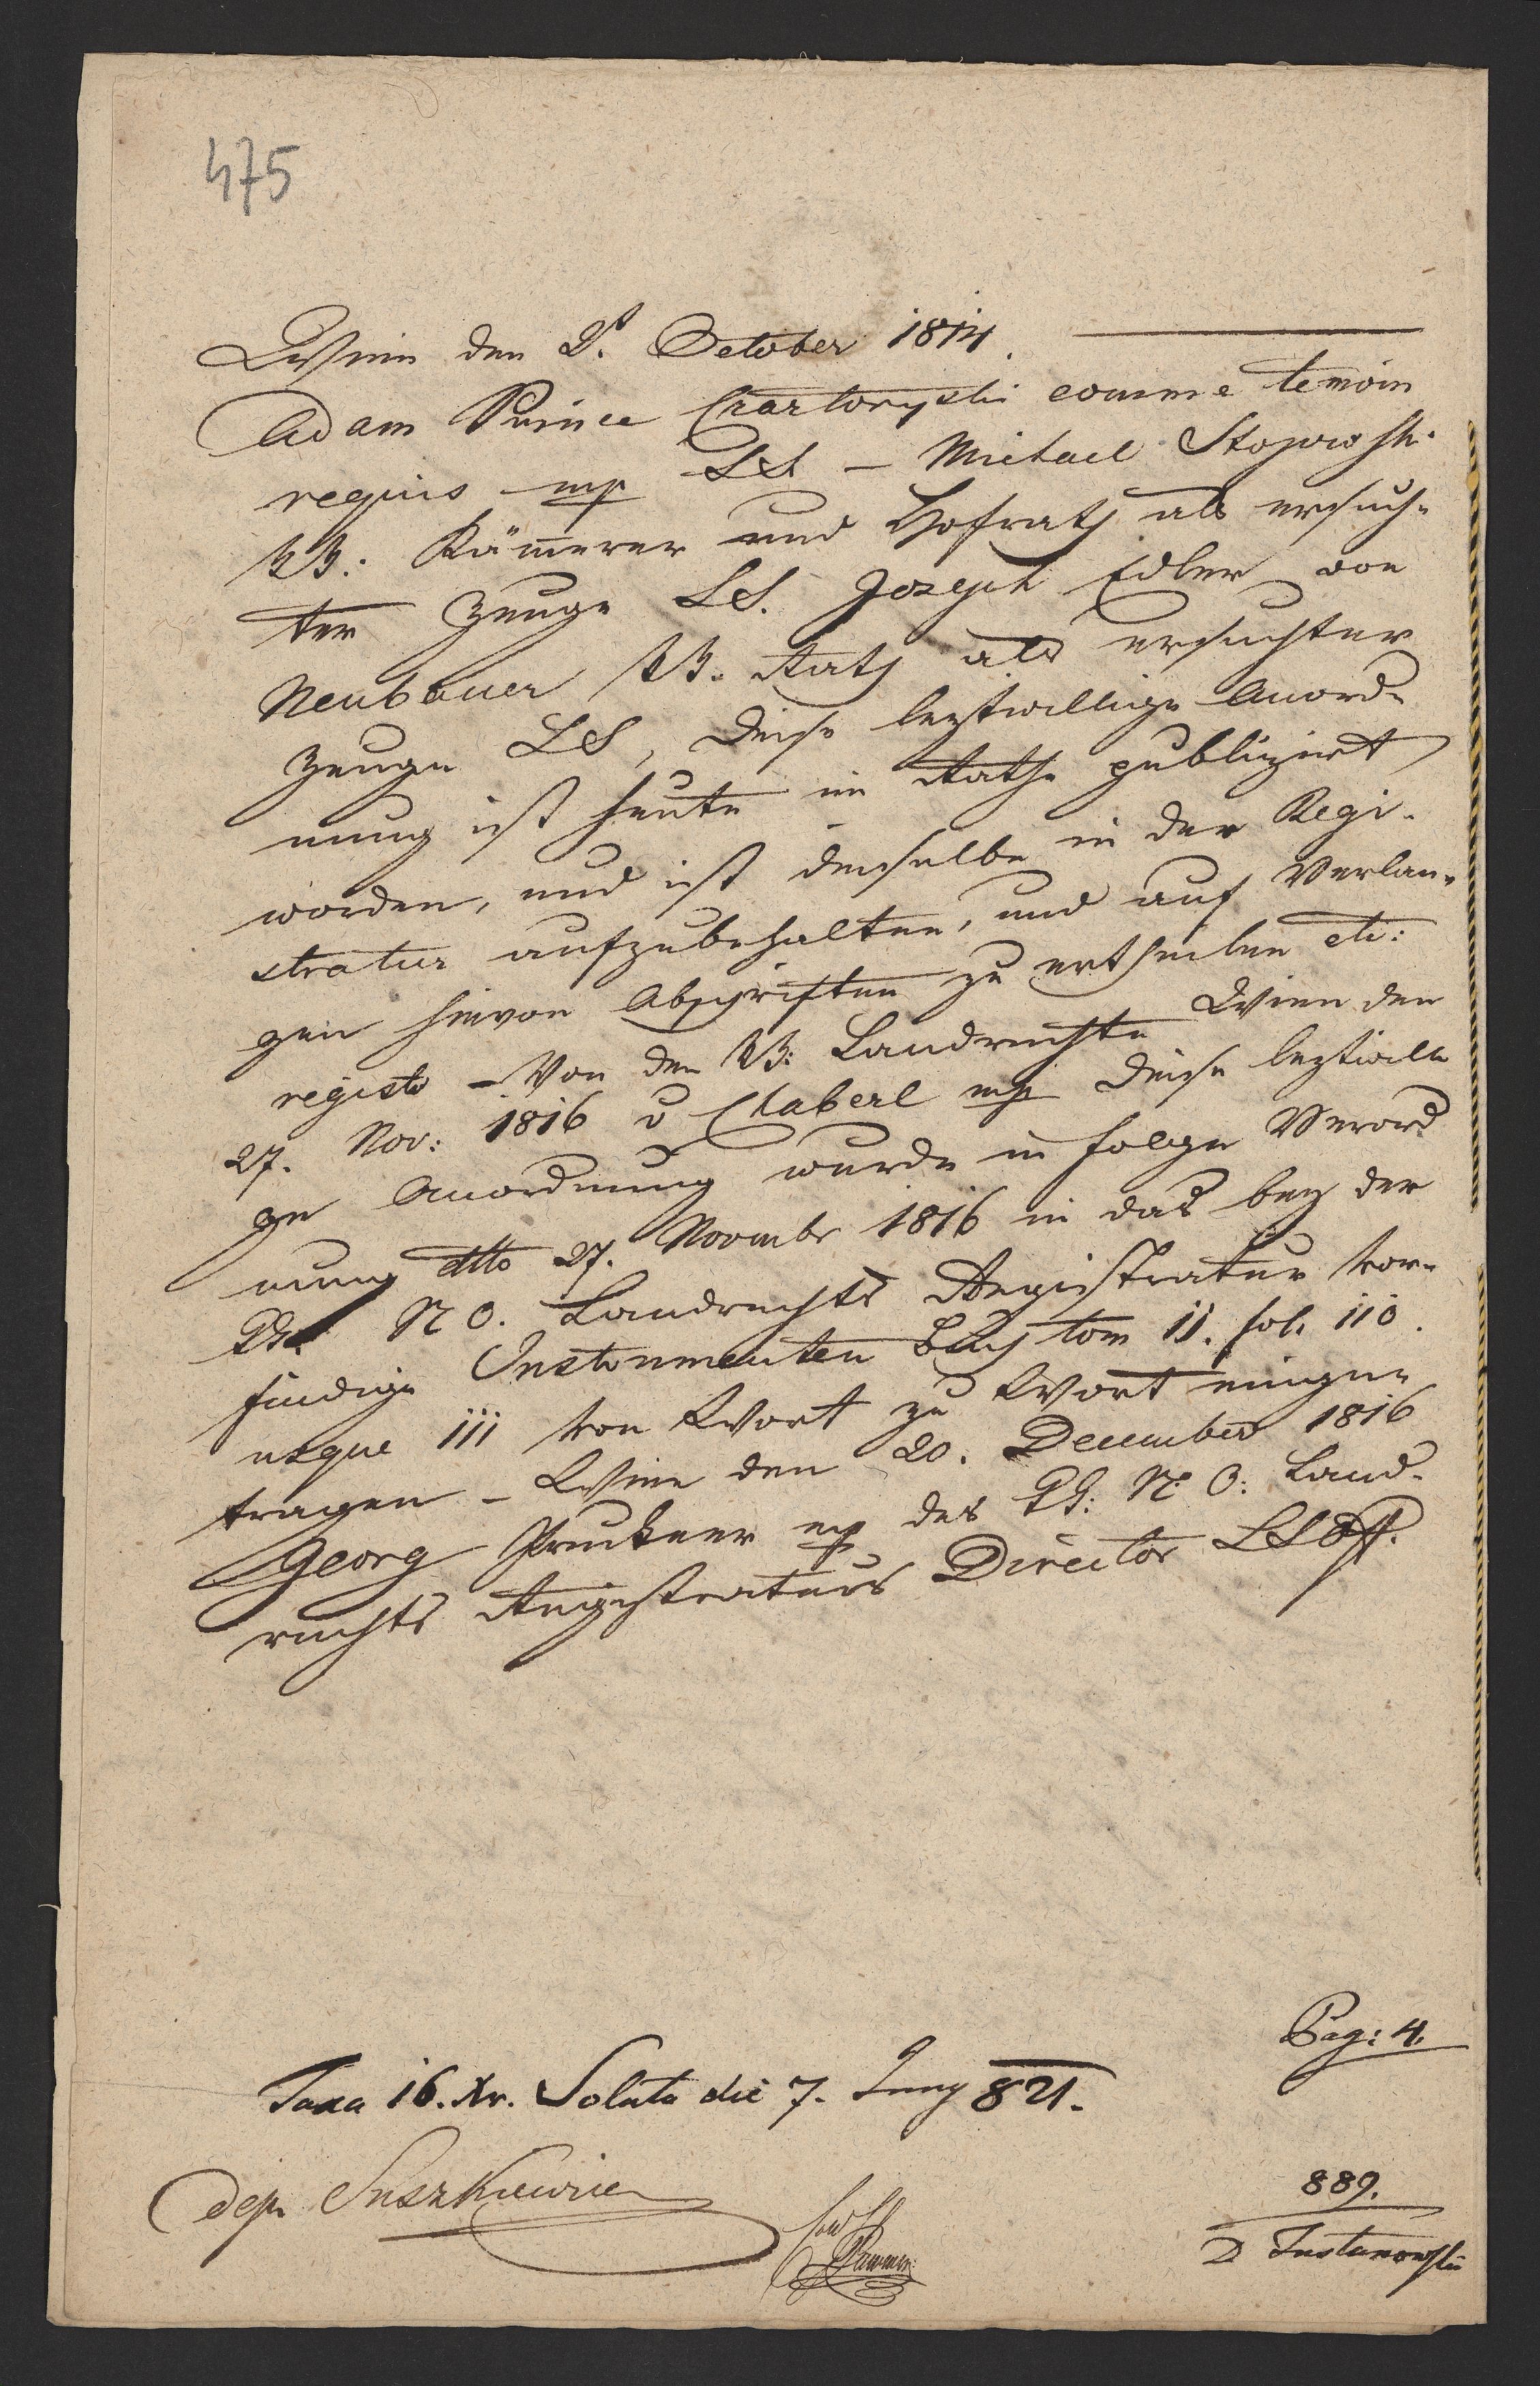 475
Wien den 2t. October 1814.
Adam Prince Czartoryski comme temoin
requis mp LS – Michael Stojowski
KK: Kämerer und Hofrath als ersuch-
ter Zeuge LS. Joseph Edler von
Neubauer KK. Rath als ersuchter
Zeuge LS, Diese leztwillige Anord-
nung ist heute im Rathe publizirt
worden, und ist dieselbe in der Regi-
stratur aufzubehalten, und auf Verlan-
gen hievon Abschriften zu ertheilen etc:
registo – Von den KK: Landrechte Wien den
27. Nov: 1816 v Chaberl mp Diese leztwilli
ge Anordnung wurde in folge Verord
nung dtto 27. Novembr 1816 in das bey der
N O. Landrechts Registratur vor-
findige Instrumenten Buch tom 11. fol. 110.
usque 111 von Wort zu Wort einge-
tragen – Wien den 20. December 1816
Georg Pruckner mp des KK: N: O: Land-
rechts Registraturs Director LS
Pag: 4.
Taxa 16. Xr. Soluta die 7. Juny 821.
889.
dep Suszkiewicz
D Justanowski